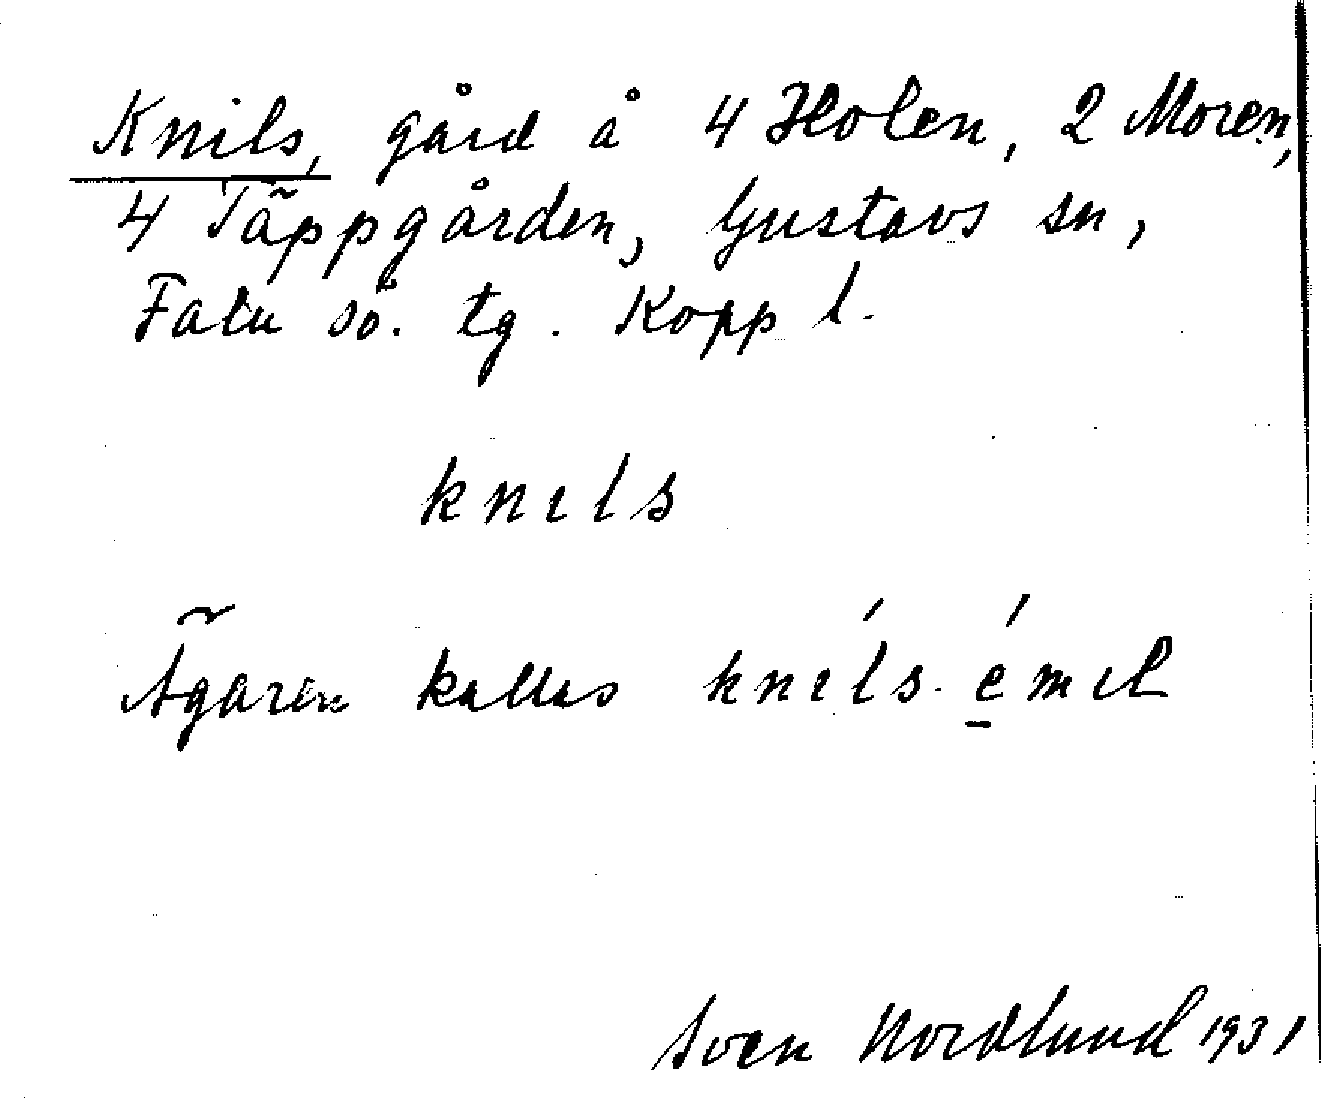 Knils, gård å 4 Holen, 2 Moren,
4 Täppgården, Gustavs sn,
Falu sö. tg. Kopp l.
knıls
Ägaren kallas knı́ls. é̱mıl
Sven Nordlund 1931